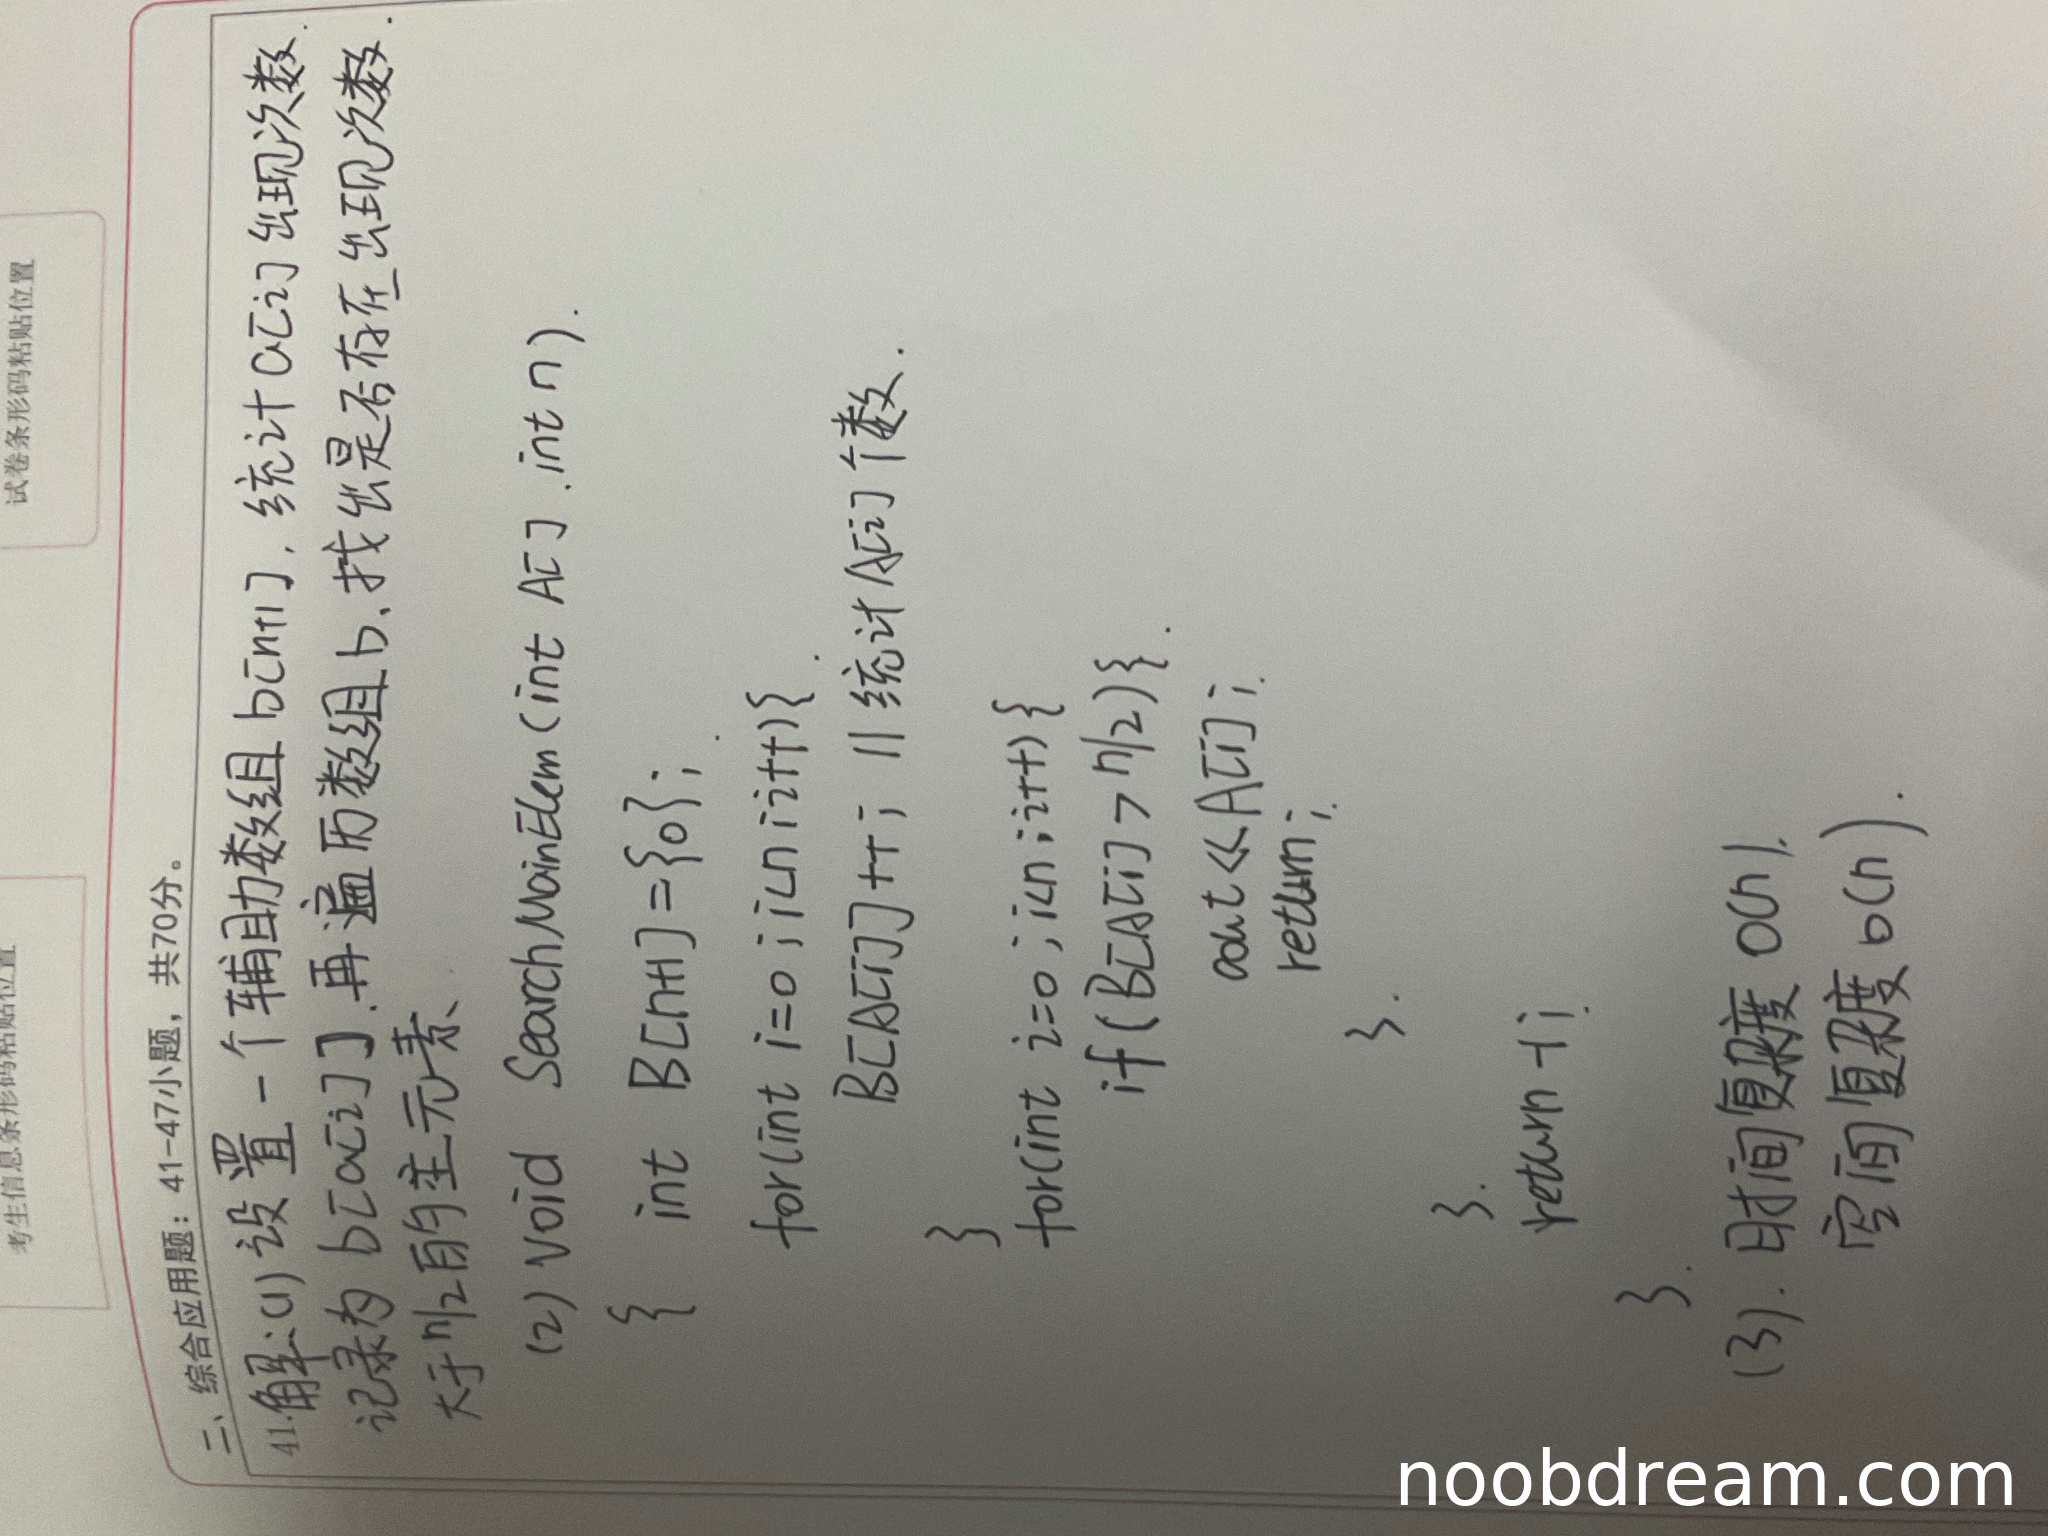 试卷条形码粘贴位置
考生信息条形码粘贴位置
二、综合应用题：41-47小题，共70分。
41.解:(1)设置一个辅助数组b[n+1]，统计a[i]出现次数.
记录为b[a[i]].再遍历数组b、找出是否存在出现次数.
大于n/2的主元素、
(2) void SearchMainElem(int A[].int n).
{ int B[n+1]={0};
for(int i=0;i<n;i++){
B[A[i]]++; //统计A[i]个数.
}
for(int i=0;i<n;i++){
if(B[A[i]>n/2){
cout<<A[i];
return;
}
}
return -1;
}
(3). 时间复杂度 O(n).
空间复杂度 O(n).
noobdream.com